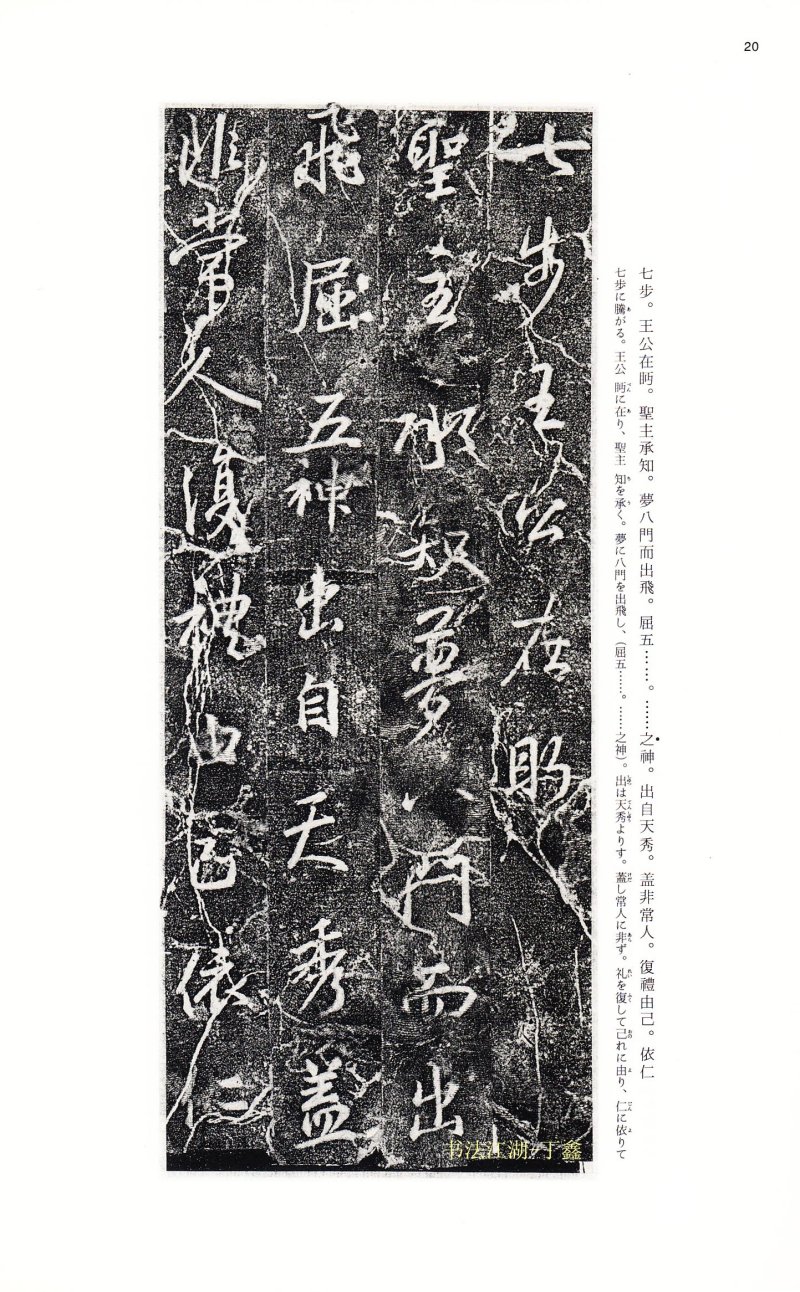 20
七步。王公在眄。聖主承知。夢八門而出飛。屈五……。……之神。出自天秀。盖非常人。復禮由己。依仁
七歩に騰がる。王公 眄に在り、聖主 知を承く。夢に八門を出飛し、（屈五……。……之神）。出は天秀よりす。蓋し常人に非ず。礼を復して己れに由り、仁に依りて
七步王公在眄
聖主承知夢八門而出
飛屈五神出自天秀盖
非常人復禮由己依仁
书法江湖/丁鑫